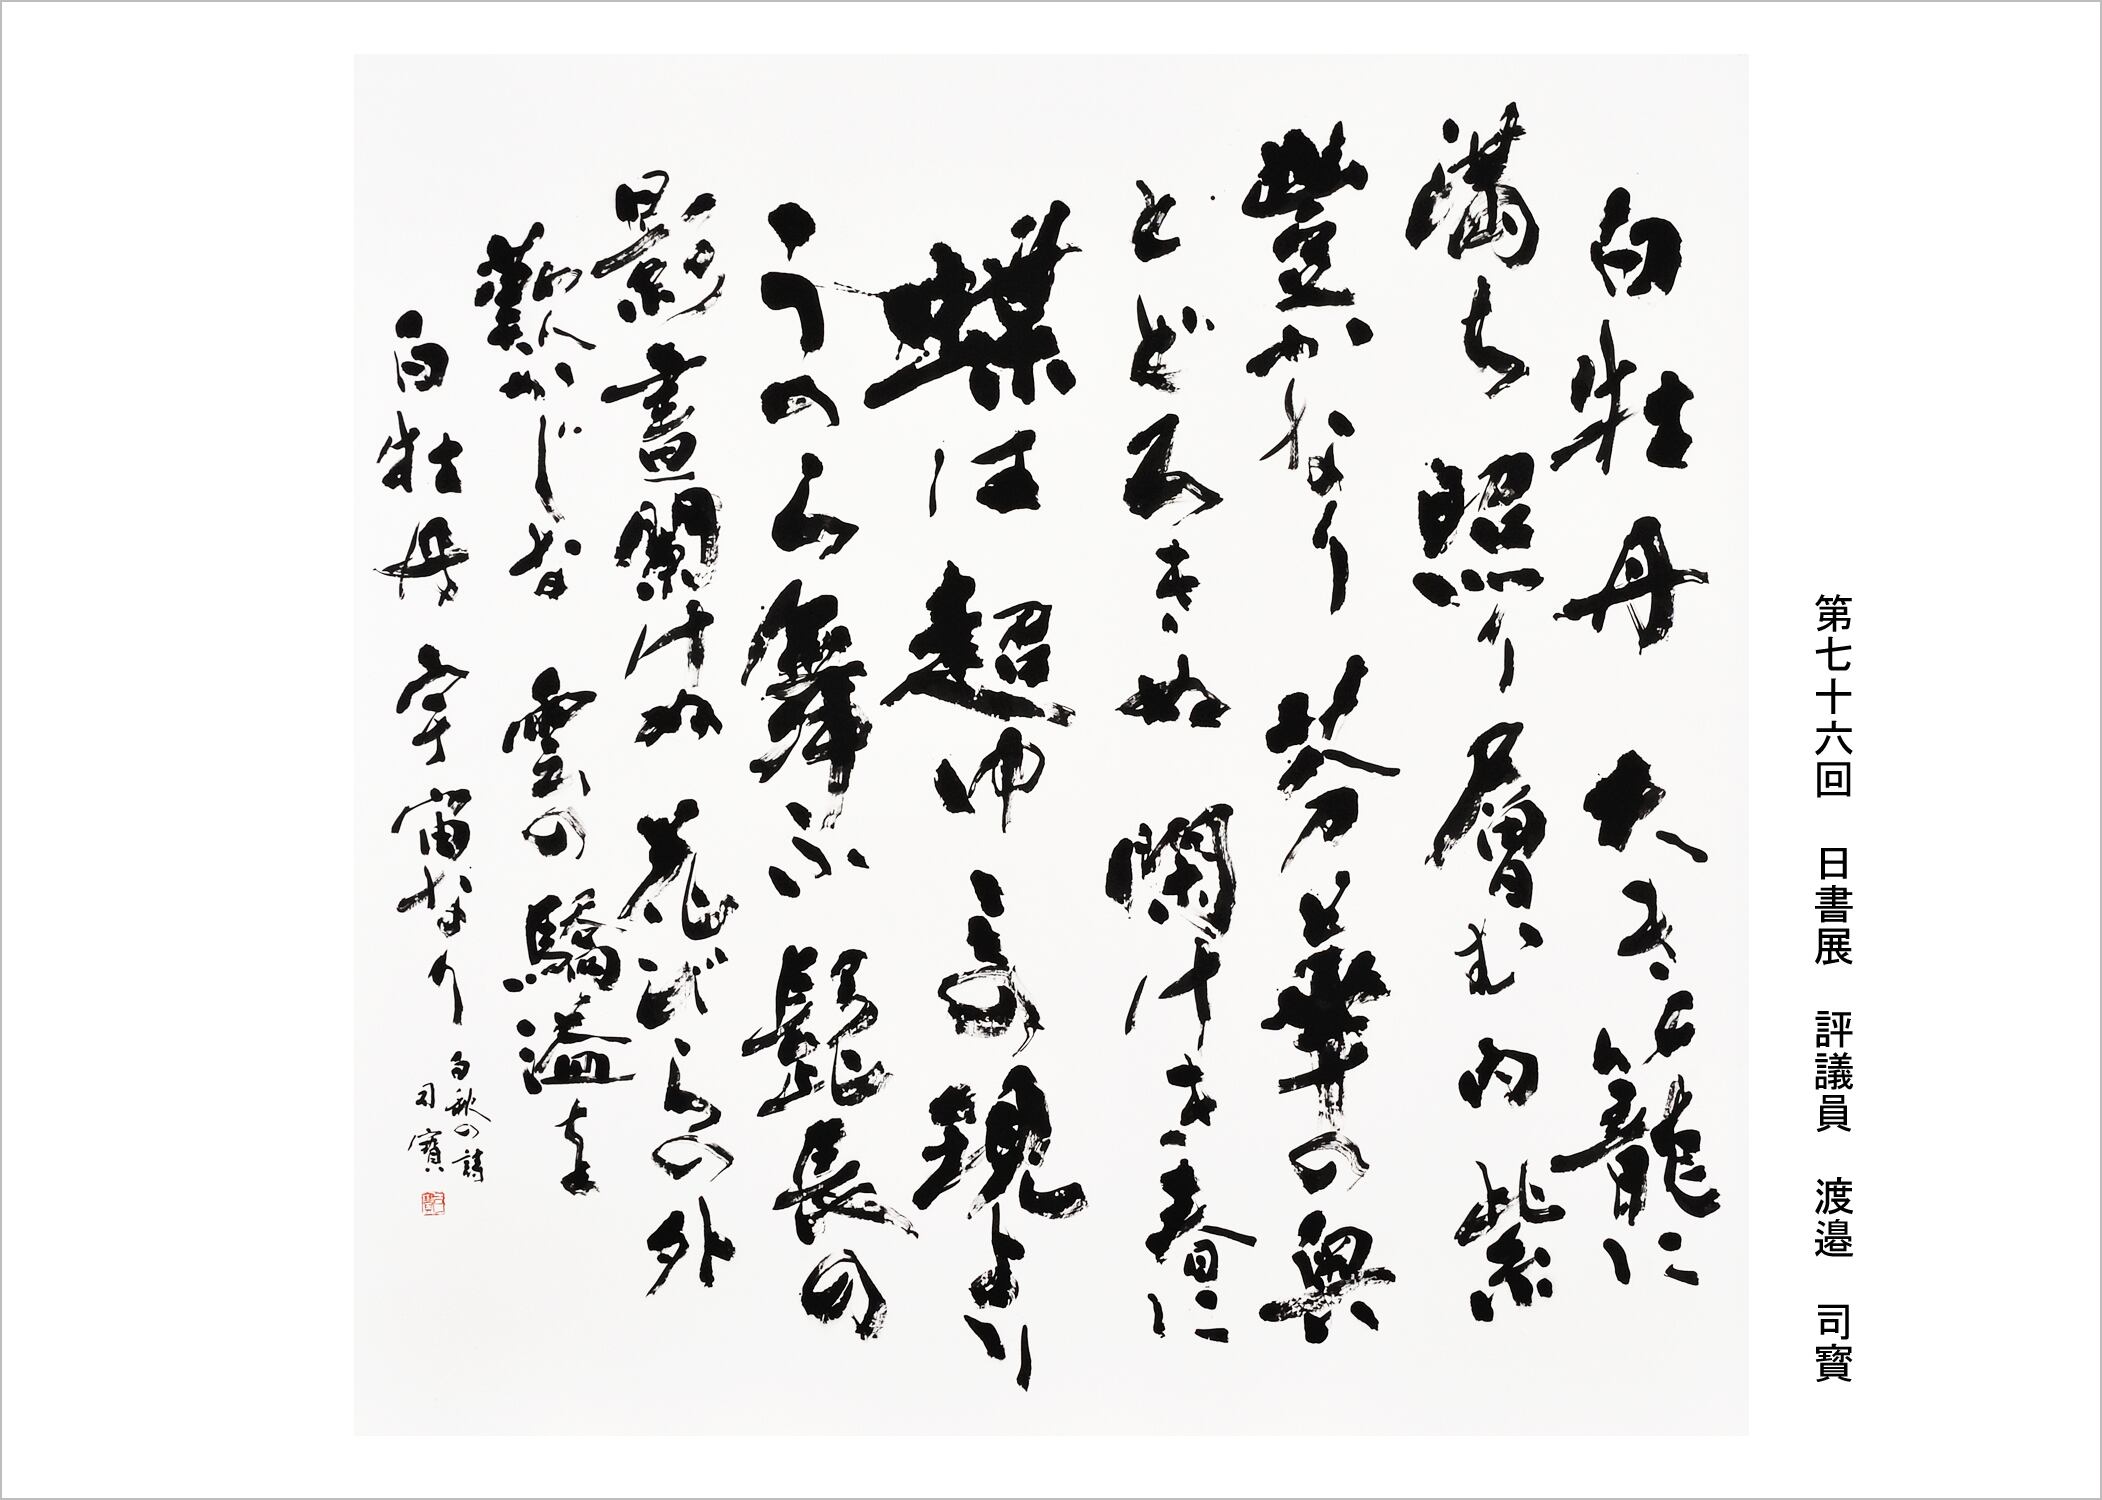 第七十六回　日書展　評議員　渡邉　司寳
白牡丹大き籠に
満ち照り層む内紫
豐かなり芬と華の奥
とどろきぬ闌けき春に
蝶は超ゆこの現より
うつら舞ふ髭長の
影晝闌けぬ花びらの外
歎かじな雲の驕溢を
白牡丹宇宙なり
白秋の詩
司寳